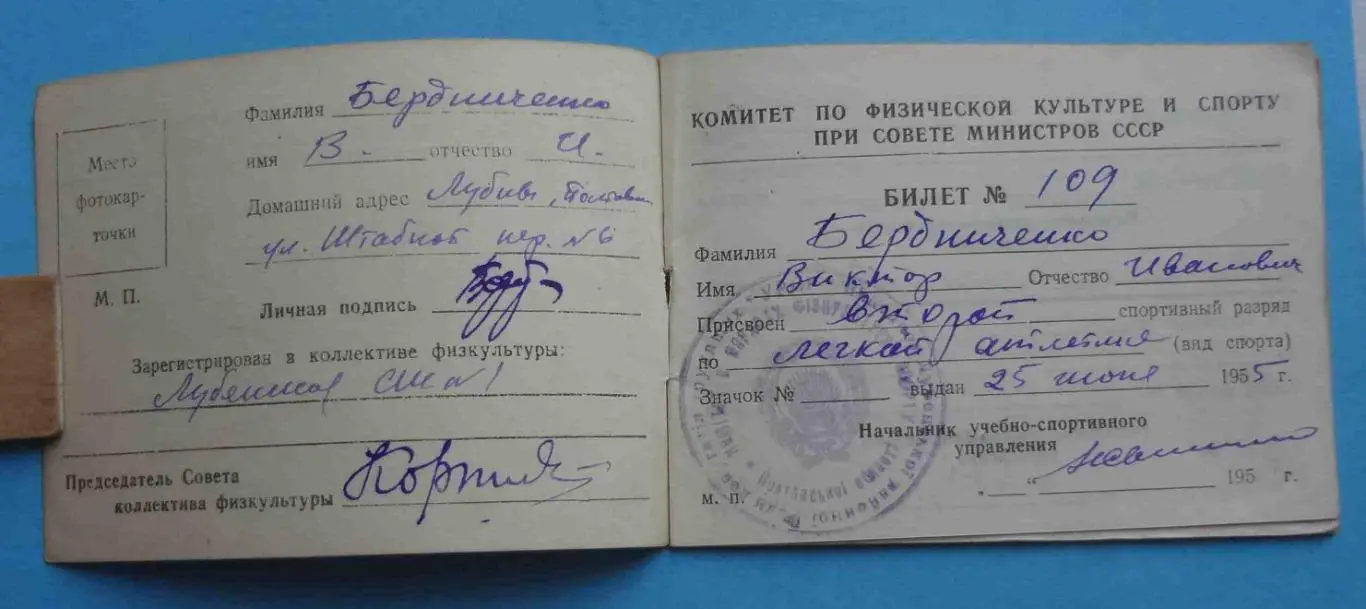 Фамилия Бердниченко
имя В. отчество И.
Место фотокар- точки
Домашний адрес Лубны, Полтавск
ул. Штабной пер. №6
М. П.
Личная подпись
Зарегистрирован в коллективе физкультуры:
Лубенская СШ №1
Председатель Совета
коллектива физкультуры
КОМИТЕТ ПО ФИЗИЧЕСКОЙ КУЛЬТУРЕ И СПОРТУ
ПРИ СОВЕТЕ МИНИСТРОВ СССР
БИЛЕТ № 109
Фамилия Бердниченко
Имя Виктор Отчество Иванович
Присвоен второй спортивный разряд
по легкой атлетике (вид спорта)
Значок № выдан 25 июня 1955 г.
Начальник учебно-спортивного
управления
м. п. „ “ 195 г.